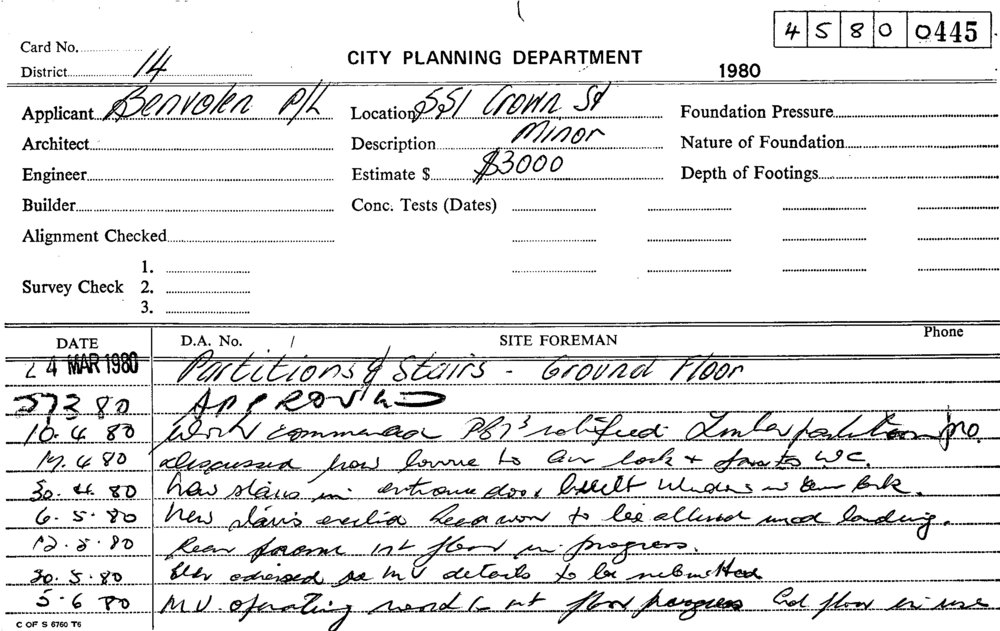 4 5 8 0 0445
Card No.
CITY PLANNING DEPARTMENT
District 14
1980
Applicant Benvolen P/L
Location 551 Crown St
Foundation Pressure
Architect
Description Minor
Nature of Foundation
Engineer
Estimate $ $3000
Depth of Footings
Builder
Conc. Tests (Dates)
Alignment Checked
1.
Survey Check 2.
3.
DATE D.A. No. SITE FOREMAN Phone
24 MAR 1980 Partitions & Stairs - Ground Floor
80 APPROVED
10.4.80 Work commenced notified
80 discussed how to air lock + W.C.
30.4.80 New stairs in entrance door built window in
6.5.80 New stairs erected to be altered landing.
12.5.80 Rear 1st floor in progress.
30.5.80 advised re MV details to be submitted
5.6.80 M.V. operating floor progress floor in use
C OF S 6760 T6